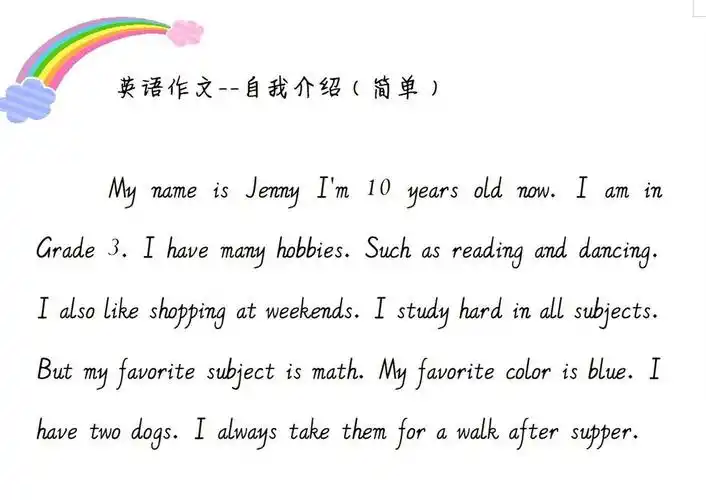 英语作文--自我介绍（简单）
My name is Jenny I'm 10 years old now. I am in
Grade 3. I have many hobbies. Such as reading and dancing.
I also like shopping at weekends. I study hard in all subjects.
But my favorite subject is math. My favorite color is blue. I
have two dogs. I always take them for a walk after supper.